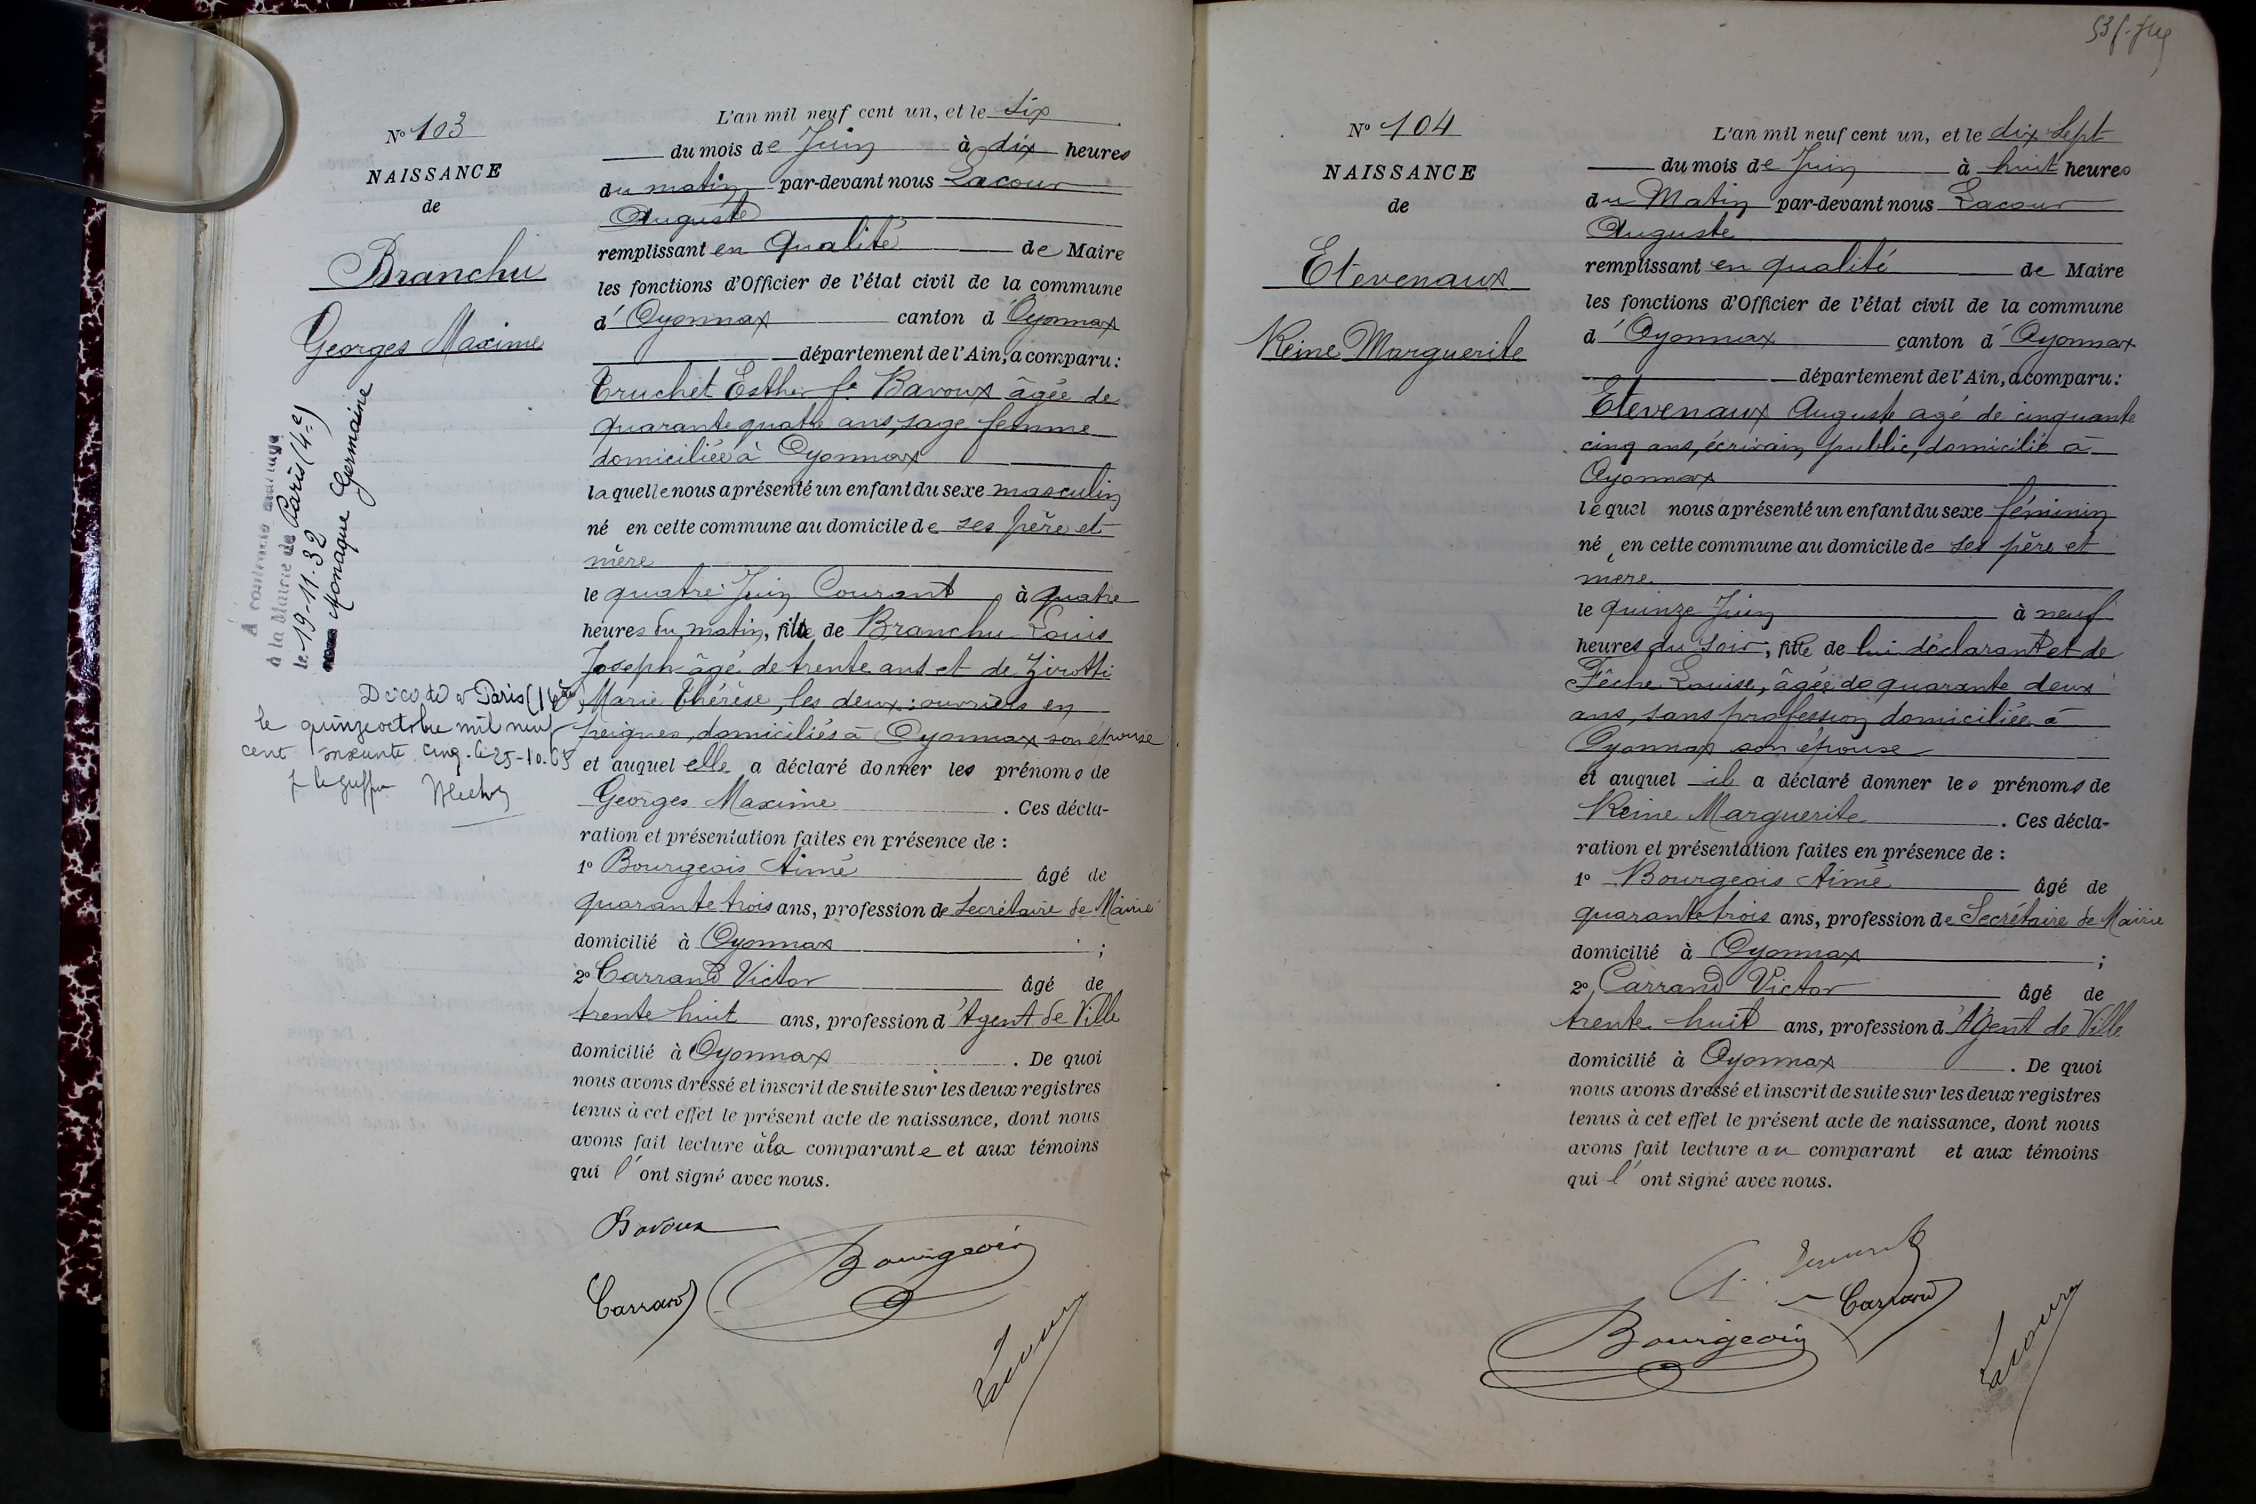 No 103
NAISSANCE
de
Branchu
Georges Maxime
A contracté mariage
à la Mairie de Paris (14e)
le 19-11-32
Monaque Germaine
Décédé à Paris (14e)
le quinze octobre mil neuf
cent soixante cinq. le 25-10-65
L'an mil neuf cent un, et le six
du mois de Juin à dix heures
du matin par-devant nous Lacour
Auguste
remplissant en qualité de Maire
les fonctions d'Officier de l'état civil de la commune
d'Oyonnax canton d'Oyonnax
département de l'Ain, a comparu :
Truchet Esther fe Bavoux âgée de
quarante quatre ans, sage femme
domiciliée à Oyonnax
laquelle nous a présenté un enfant du sexe masculin
né en cette commune au domicile de ses père et
mère
le quatre Juin Courant à quatre
heures du matin, fils de Branchu Louis
Joseph âgé de trente ans et de Zirotti
Marie Thérèse, les deux : ouvriers en
peignes, domiciliés à Oyonnax son épouse
et auquel elle a déclaré donner les prénoms de
Georges Maxime . Ces décla-
ration et présentation faites en présence de :
1o Bourgeois Aimé âgé de
quarante trois ans, profession de Secrétaire de Mairie
domicilié à Oyonnax ;
2o Carrand Victor âgé de
trente huit ans, profession d'Agent de Ville
domicilié à Oyonnax . De quoi
nous avons dressé et inscrit de suite sur les deux registres
tenus à cet effet le présent acte de naissance, dont nous
avons fait lecture à la comparante et aux témoins
qui l'ont signé avec nous.
Bavoux
Bourgeois
Carrand
Lacour
No 104
NAISSANCE
de
Etevenaux
Reine Marguerite
L'an mil neuf cent un, et le dix Sept
du mois de Juin à huit heures
du Matin par-devant nous Lacour
Auguste
remplissant en qualité de Maire
les fonctions d'Officier de l'état civil de la commune
d'Oyonnax canton d'Oyonnax
département de l'Ain, a comparu :
Etevenaux Auguste agé de cinquante
cinq ans, écrivain public, domicilié à
Oyonnax
lequel nous a présenté un enfant du sexe féminin
né en cette commune au domicile de ses père et
mère
le quinze Juin à neuf
heures du soir, fille de lui déclarant et de
Fêche Louise, âgée de quarante deux
ans, sans profession domiciliée à
Oyonnax son épouse
et auquel il a déclaré donner les prénoms de
Reine Marguerite . Ces décla-
ration et présentation faites en présence de :
1o Bourgeois Aimé âgé de
quarante trois ans, profession de Secrétaire de Mairie
domicilié à Oyonnax ;
2o Carrand Victor âgé de
trente huit ans, profession d'Agent de Ville
domicilié à Oyonnax . De quoi
nous avons dressé et inscrit de suite sur les deux registres
tenus à cet effet le présent acte de naissance, dont nous
avons fait lecture au comparant et aux témoins
qui l'ont signé avec nous.
Carrand
Bourgeois
Lacour